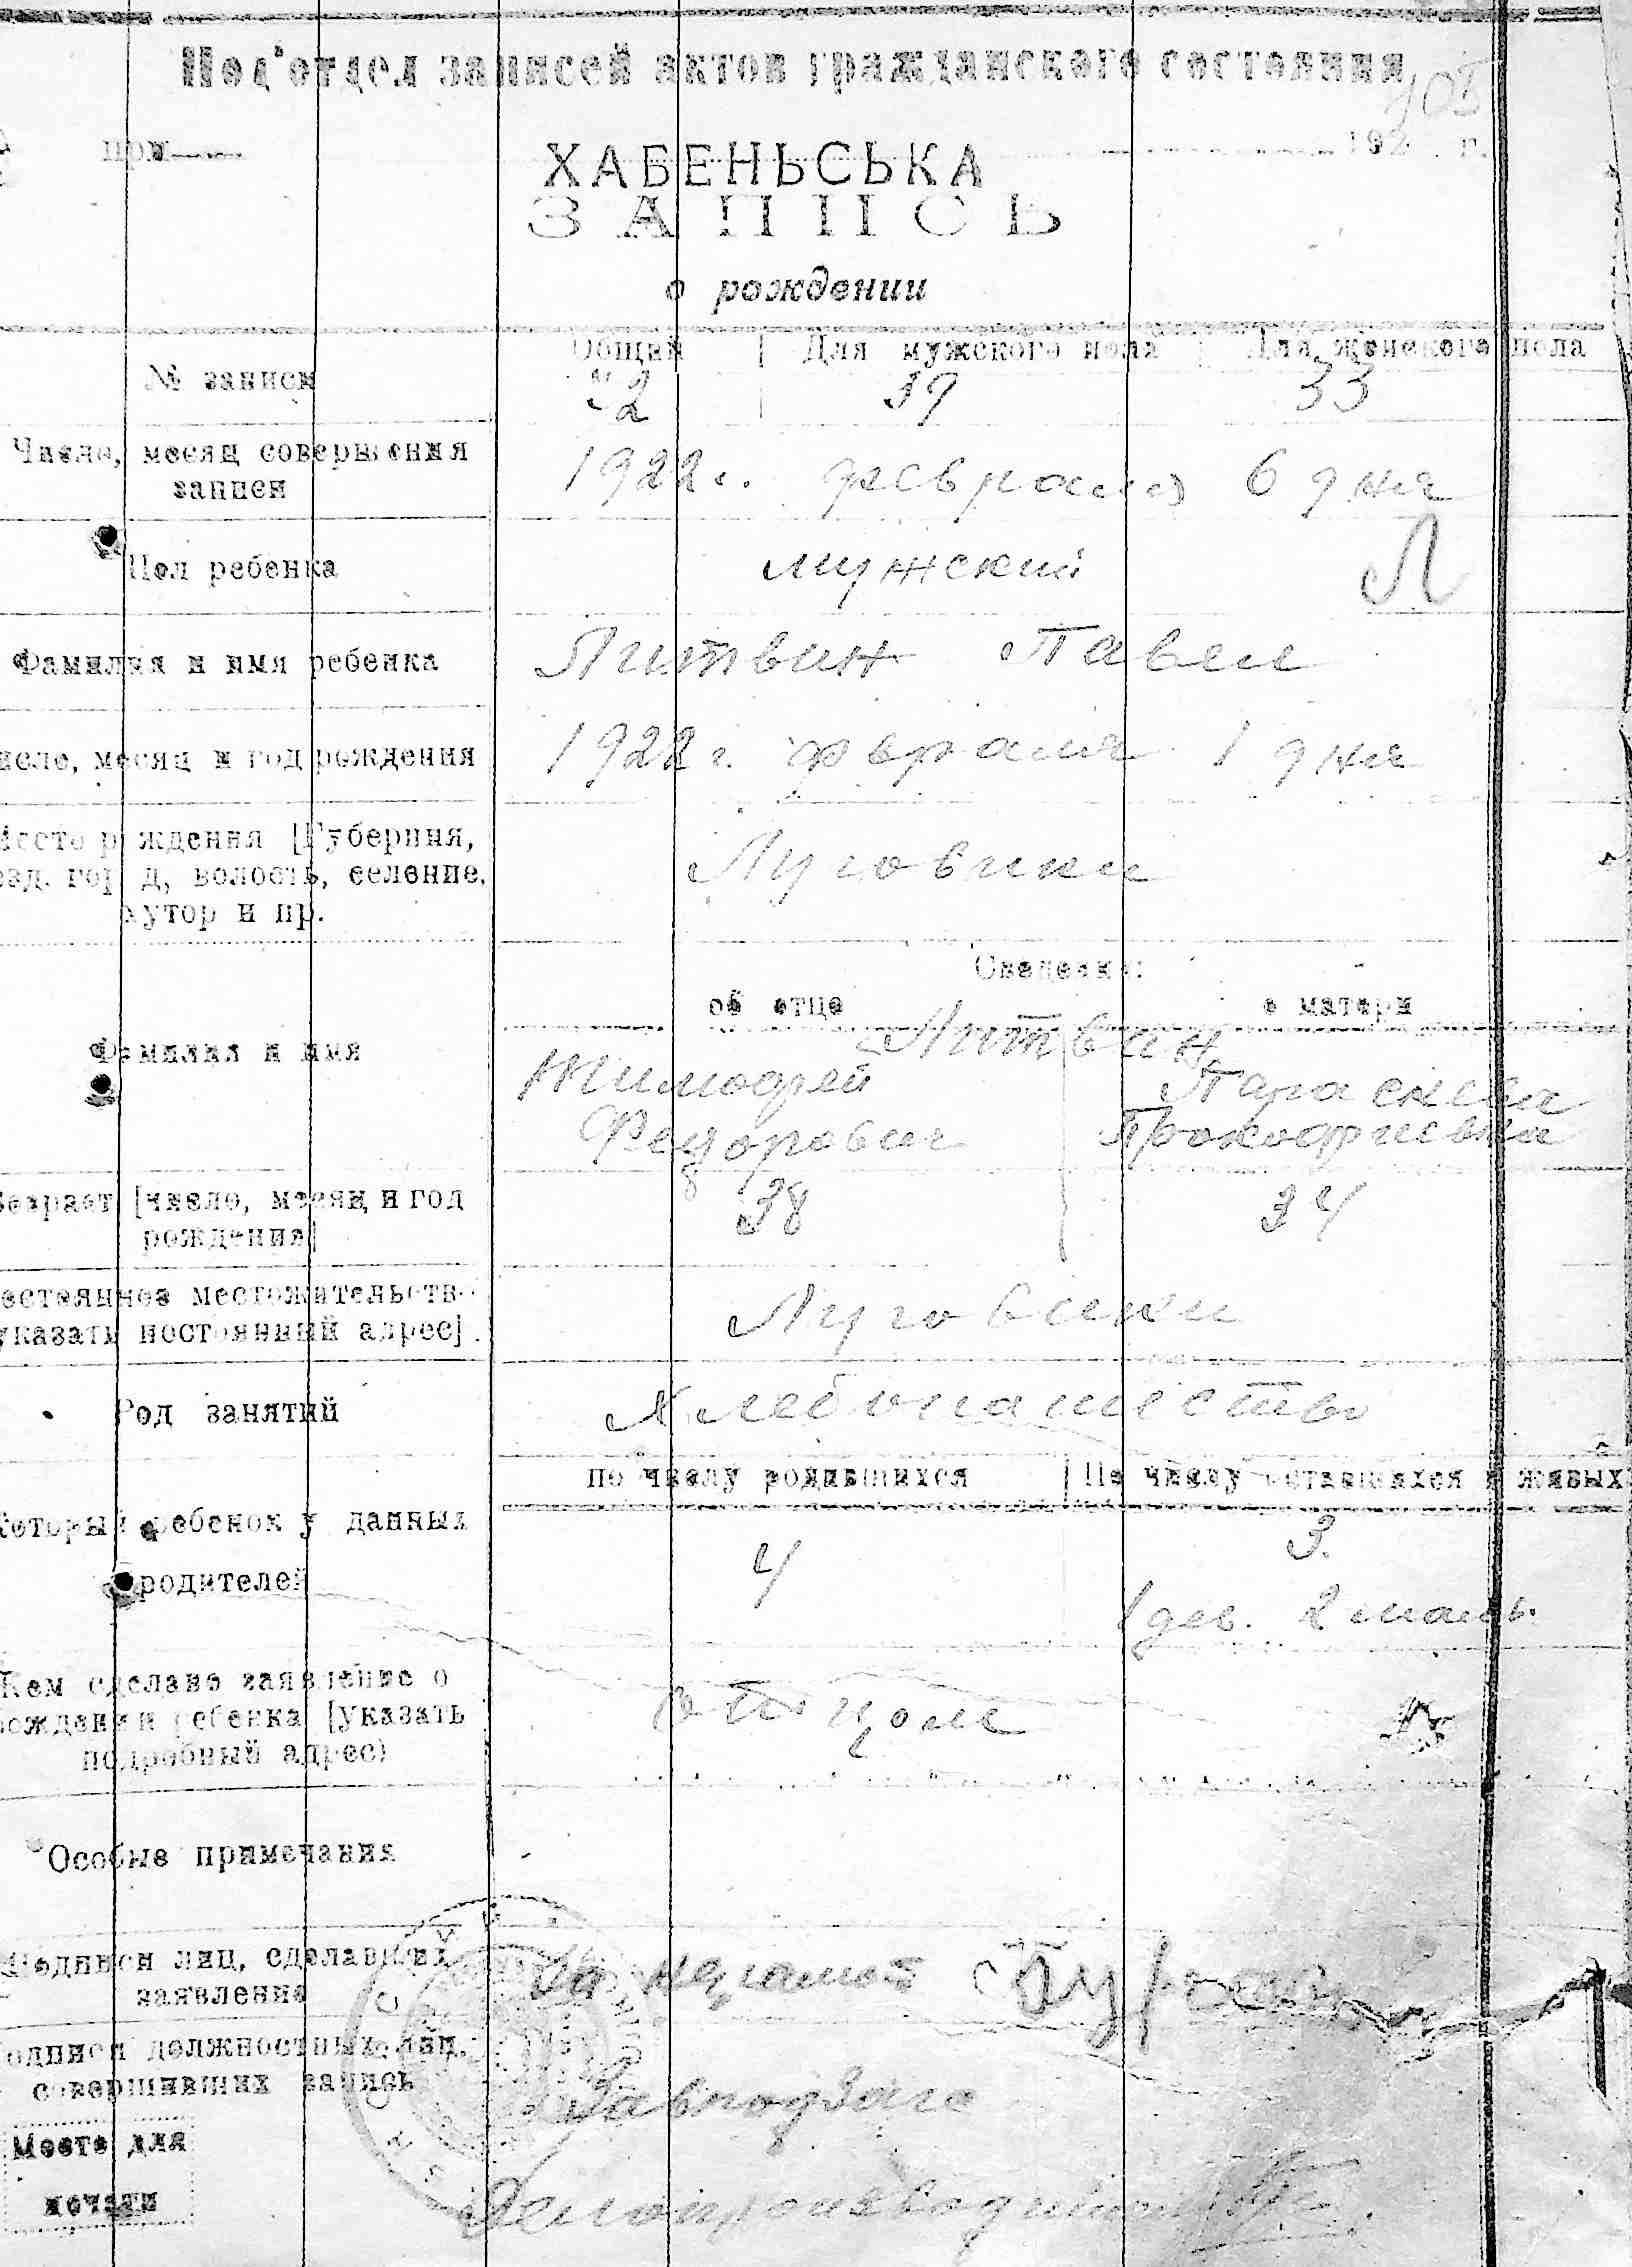 Под'отдел записей актов гражданского состояния
105
при 192 г.
ХАБЕНЬСЬКА
ЗАПИСЬ
о рождении
№ записи Общий Для мужского пола Для женского пола
72 39 33
Число, месяц совершения 1922 г. февраля 6 дня
записи
Пол ребенка мужский Л
Фамилия и имя ребенка Литвин Павел
исло, месяц и год рождения 1922 г. февраля 1 дня
Место рождения [Губерния,
езд, город, волость, селение, Луговики
хутор и пр.
Сведения:
об отце о матери
Фамилия и имя Литвин
Тимофей Параскева
Федорович Прокофиевна
Возраст [число, месяц и год 38 34
рождения]
остоянное местожительство Луговики
указать постоянный адрес].
Род занятий Хлебопашество
по числу родившихся По числу оставшихся в живых
Который ребенок у данных 4 3.
родителей 1 дев. 2 мальч.
Кем сделано заявление о
рождении ребенка [указать отцом
подробный адрес)
Особые примечания
Подписи лиц, сделавших За неграмот
заявление
одписи должностных лиц,
совершивших запись Завподзагс
Место для
печати Делопроизводитель